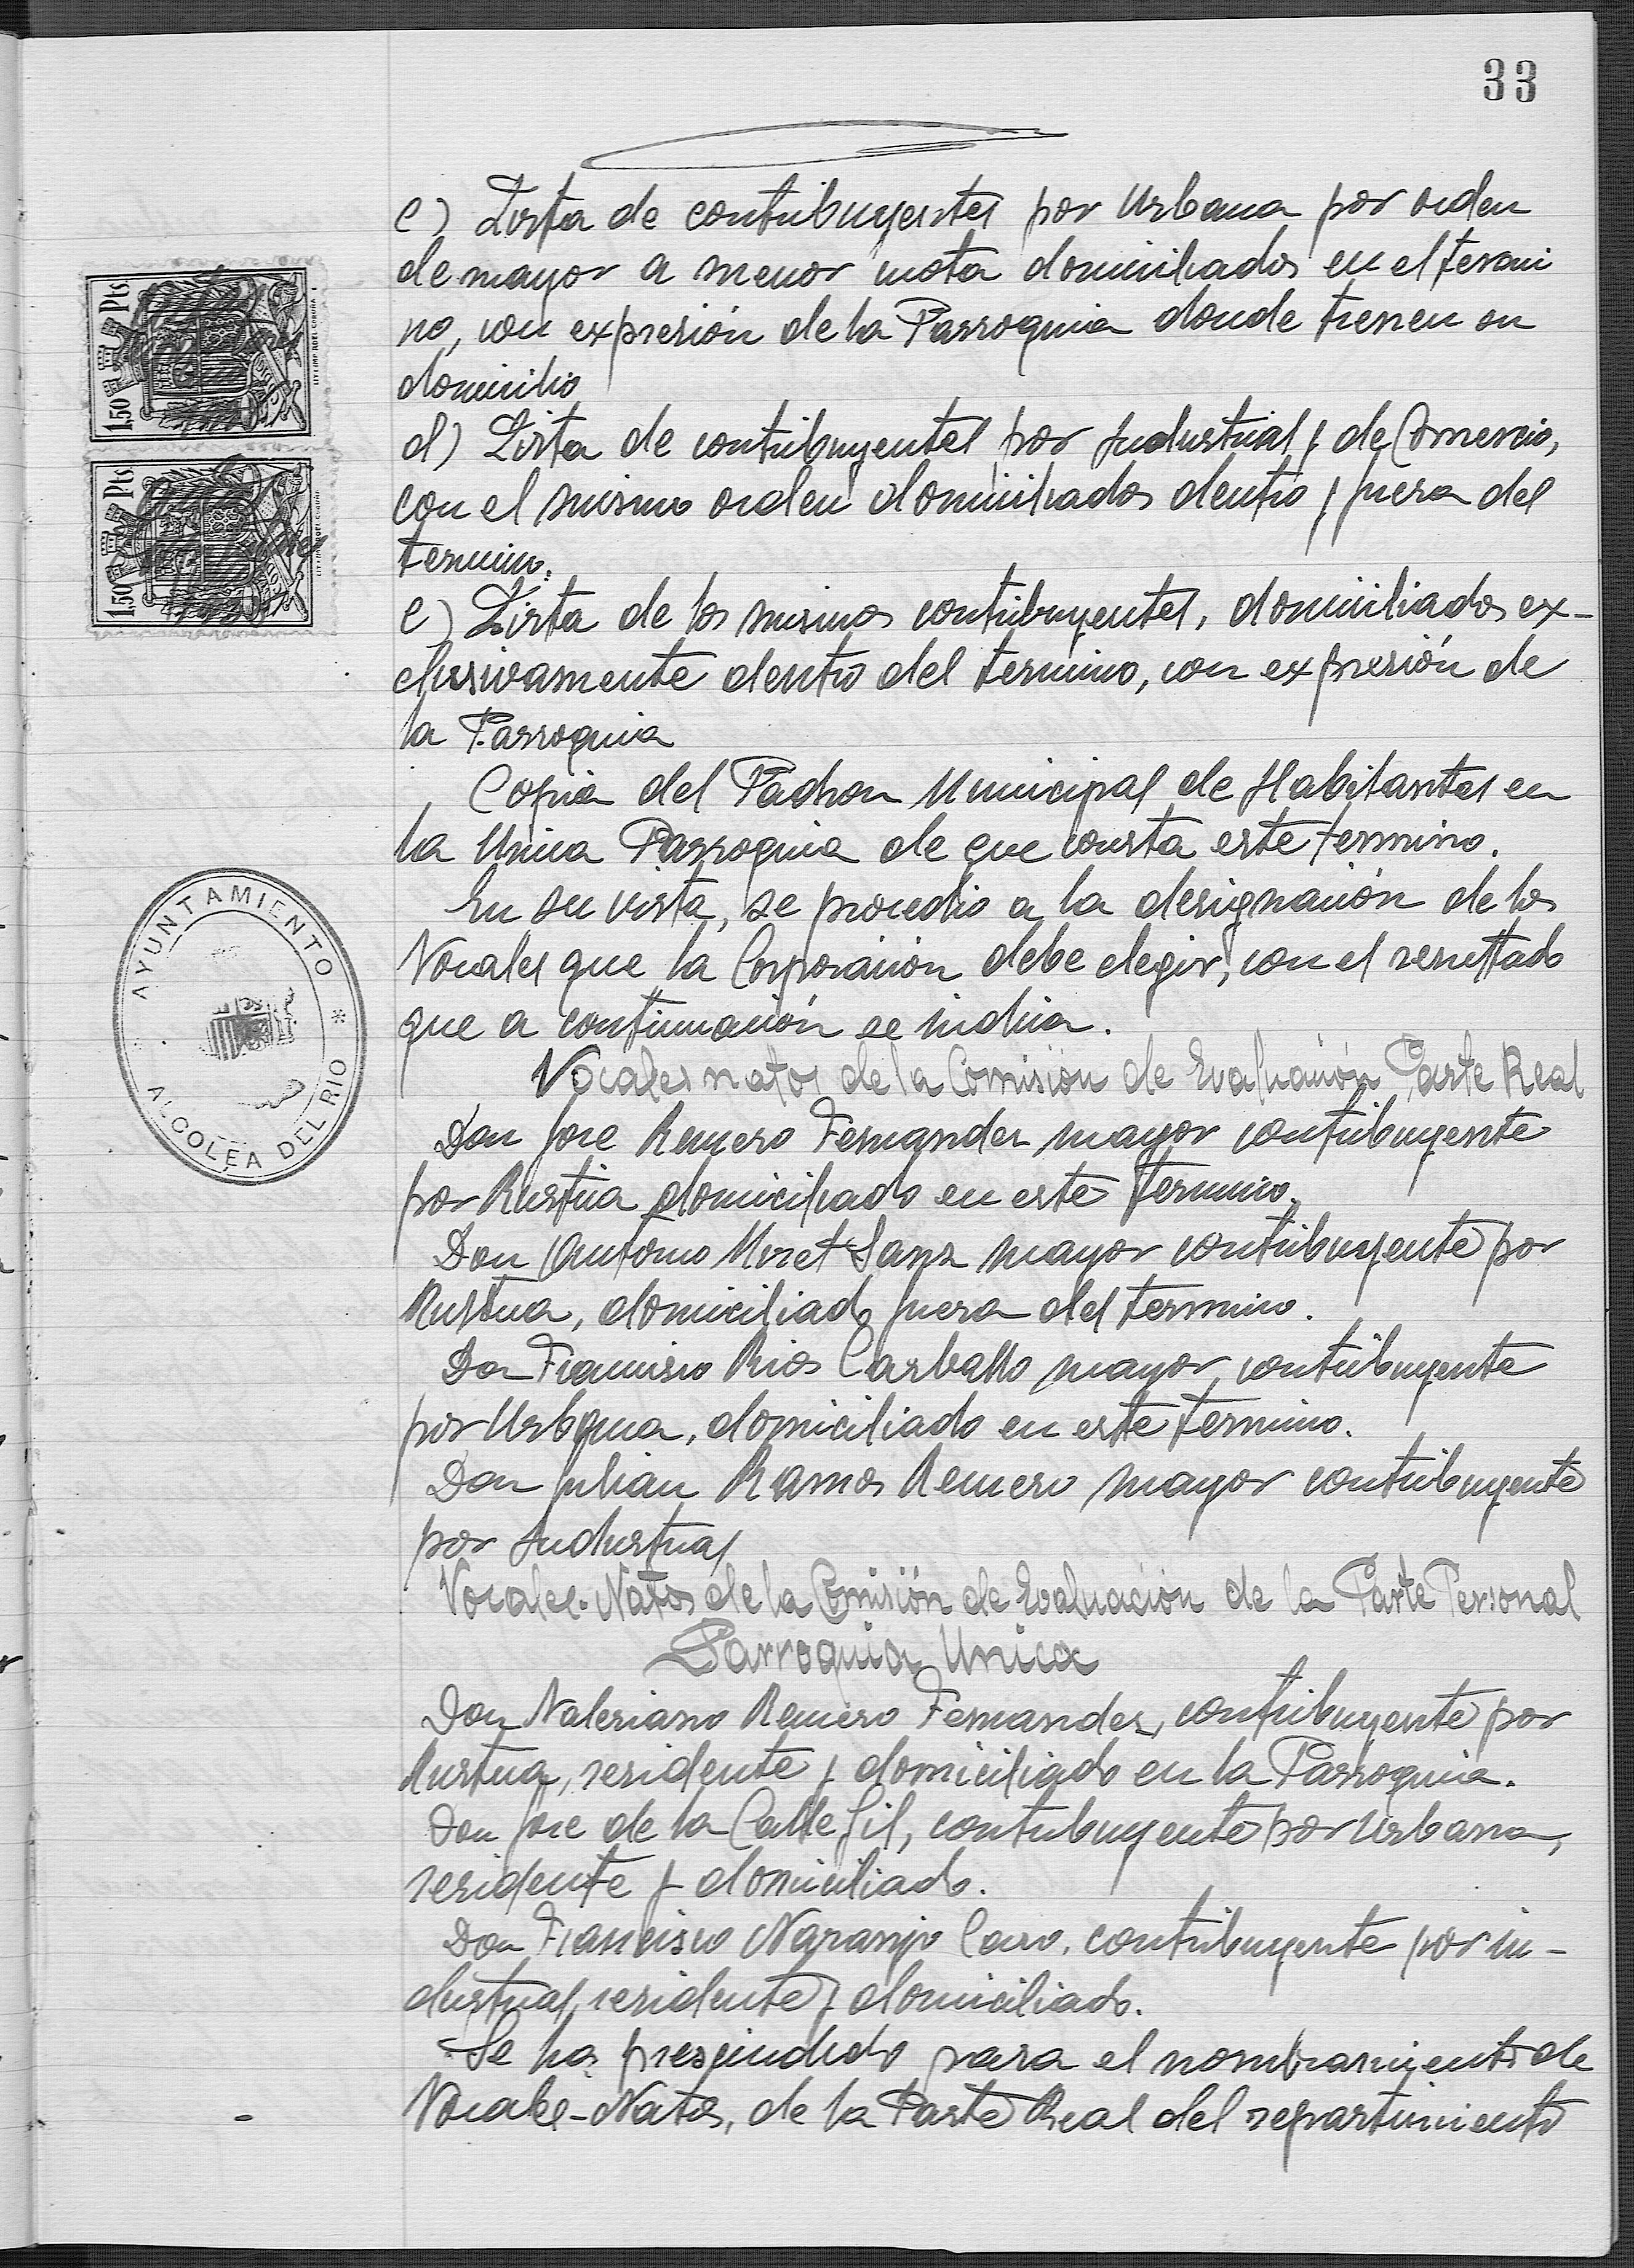 33
c) Lista de contribuyentes por Urbana por orden
de mayor a menor cuota domiciliados en el termi
no, con expresión de la Parroquia donde tienen su
domicilio
d) Lista de contribuyentes por Industrial y de Comercio,
con el mismo orden domiciliados dentro y fuera del
termino.
e) Lista de los mismos contribuyentes, domiciliados ex-
clusivamente dentro del termino, con expresión de
la Parroquia
Copia del Padron Municipal de Habitantes en
la Unica Parroquia de que consta este termino.
En su vista, se procedio a la designación de los
Vocales que la Corporación debe elegir, con el resultado
que a continuación se indica.
Vocales natos de la Comisión de Evaluación Parte Real
Don Jose Romero Fernandez mayor contribuyente
por Rustica domiciliado en este termino.
Don Antonio Miret Sanz mayor contribuyente por
Rustica, domiciliado fuera del termino.
Don Francisco Rios Carballo mayor contribuyente
por Urbana, domiciliado en este termino.
Don Julian Ramos Romero mayor contribuyente
por Industrial
Vocales-Natos de la Comisión de Evaluación de la Parte Personal
Parroquia Unica
Don Valeriano Romero Fernandez, contribuyente por
Rustica, residente y domiciliado en la Parroquia.
Don Jose de la Calle Gil, contribuyente por Urbana,
residente y domiciliado.
Don Francisco Naranjo Caro, contribuyente por in-
dustrial, residente y domiciliado.
Se ha prescindido para el nombramiento de
Vocales-Natos, de la Parte Real del repartimiento
1,50 Pts
1,50 Pts
AYUNTAMIENTO * ALCOLEA DEL RIO